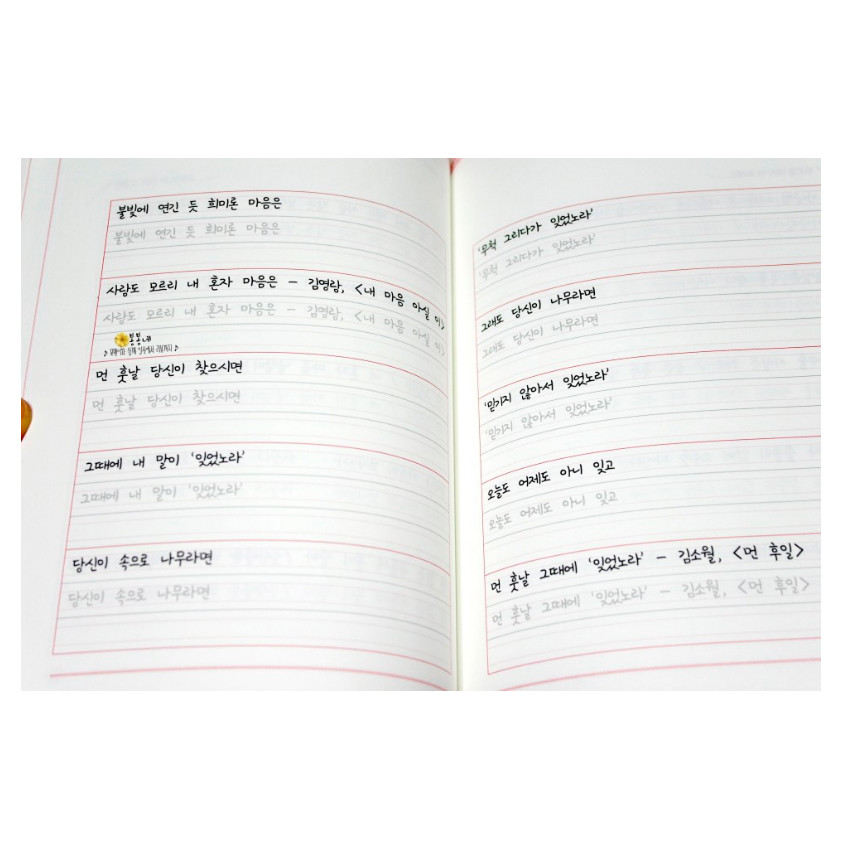 불빛에 연긴 듯 희미론 마음은
불빛에 연긴 듯 희미론 마음은
사랑도 모르리 내 혼자 마음은 - 김영랑, <내 마음 아실 이>
사랑도 모르리 내 혼자 마음은 - 김영랑, <내 마음 아실 이>
봉봉네
먼 훗날 당신이 찾으시면
먼 훗날 당신이 찾으시면
그때에 내 말이 '잊었노라'
그때에 내 말이 '잊었노라'
당신이 속으로 나무라면
당신이 속으로 나무라면
'무척 그리다가 잊었노라'
'무척 그리다가 잊었노라'
그래도 당신이 나무라면
그래도 당신이 나무라면
'믿기지 않아서 잊었노라'
'믿기지 않아서 잊었노라'
오늘도 어제도 아니 잊고
오늘도 어제도 아니 잊고
먼 훗날 그때에 '잊었노라' - 김소월, <먼 후일>
먼 훗날 그때에 '잊었노라' - 김소월, <먼 후일>